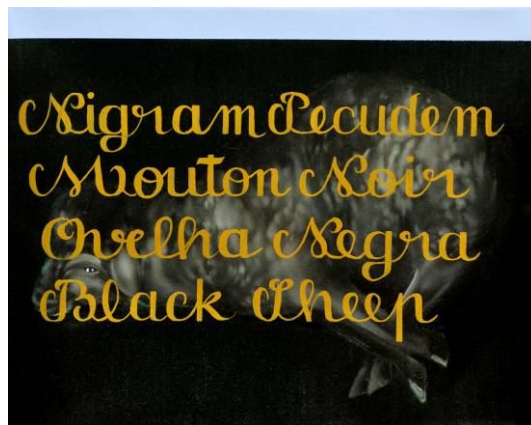 Nigram Pecudem
Mouton Noir
Ovelha Negra
Black Sheep